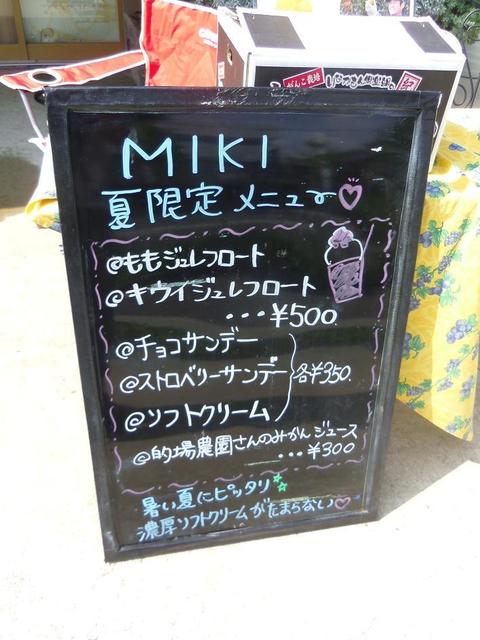 がんこ栽培
MIKI
夏限定メニュー♡
@ももジュレフロート
@キウイジュレフロート
・・・¥500
@チョコサンデー
@ストロベリーサンデー
各¥350.
@ソフトクリーム
@的場農園さんのみかんジュース
・・・¥300
暑い夏にピッタリ☆☆
濃厚ソフトクリームがたまらない♡